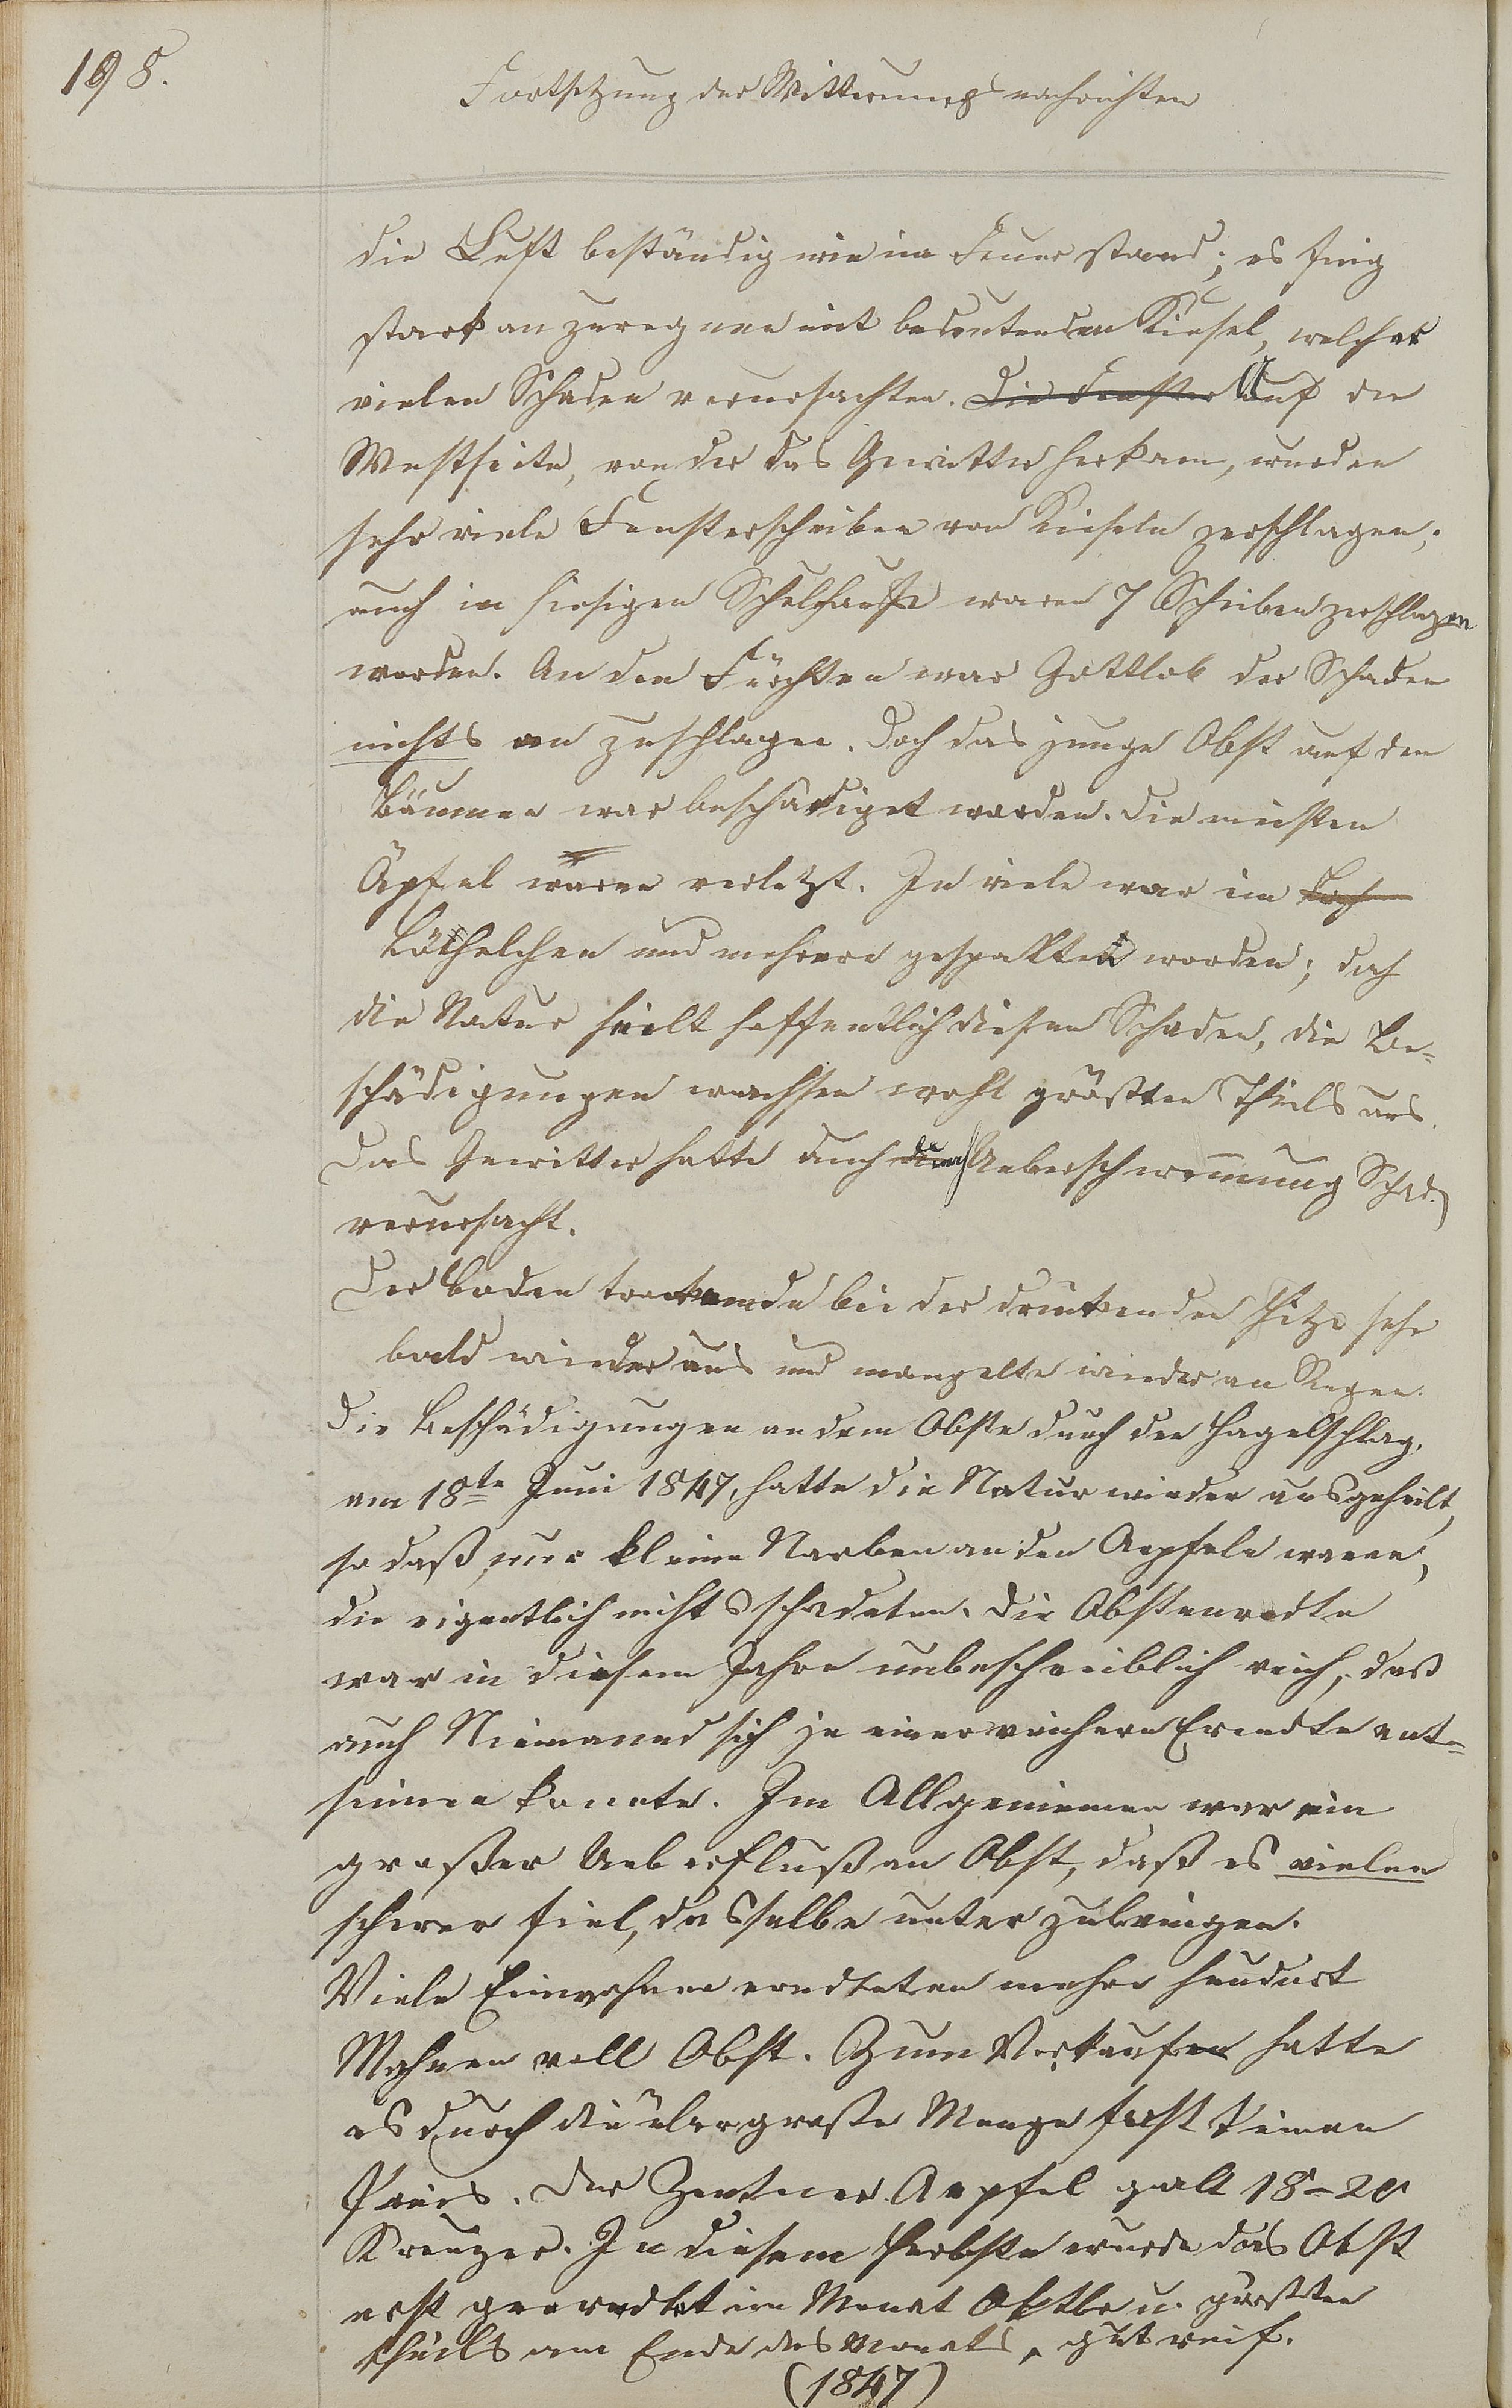 198.
Fortsetzung der Witterungsnachrichten
die Luft beständig wie im Feuer stand; es fing
stark an zuregnen mit bedeutenden Kiesel, welche
vielen Schaden verursachten. Die Fenster Auf der
Westseite, von der das Gewitter herkam, wurden
sehr viele Fensterscheiben von Kieseln zerschlagen;
auch im hiesigen Schulhause waren 7 Scheiben zerschlagen
worden. An den Früchten war Gottlob der Schaden
nichts an zuschlagen. Doch das junge Obst auf den
Bäumen war beschädiget worden. Die meisten
Äpfel waren verletzt. In viele war ein Loch
Löchelchen und mehrere gespalten worden; doch
die Natur heilt hoffentlich diesen Schaden, die Be=
schädigungen wachsen wohl größten Theils aus.
Das Gewitter hatte auch durch Ueberschwemmung Schad.
verursacht.
Der Boden trocknede bei der drückenden Hitze sehr
bald wieder aus und mangelte wieder an Regen.
Die Beschädigungen an dem Obste durch den Hagelschlag,
am 18te Juni 1847, hatte die Natur wieder ausgeheilt,
so daß nur kleine Narben an den Aepfeln waren,
die eigentlich nichts schadeten. Die Obsterndte
war in diesem Jahre unbeschreiblich reich, daß
auch Niemand sich je einer reichern Erndte ent=
sinnen konnte. Im Allgemeinen war ein
großer Ueberfluß an Obst, daß es vielen
schwer fiel, dasselbe unter zubringen.
Viele Einwohner erndteten mehre hundert
Mahnen voll Obst. Zum Verkaufen hatte
es durch die übergroße Menge fast keinen
Preis. Der Zentner Aepfel galt 18-20
Kreuzer. In diesem Herbste wurde das Obst
erst geerndtet im Monat Oktbr u. größten
theils am Ende des Monats, gut reif.
(1847)